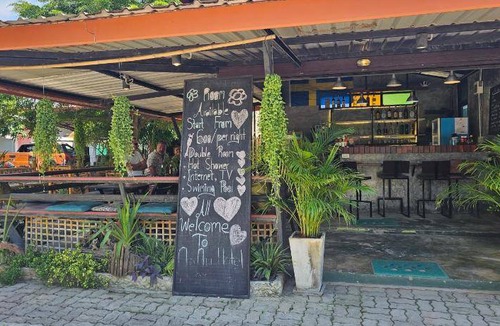 Room
Available
Start From
600/per night
• Double Room
• Hot Shower
• Internet, TV
• Swimming Pool
All
Welcome
To